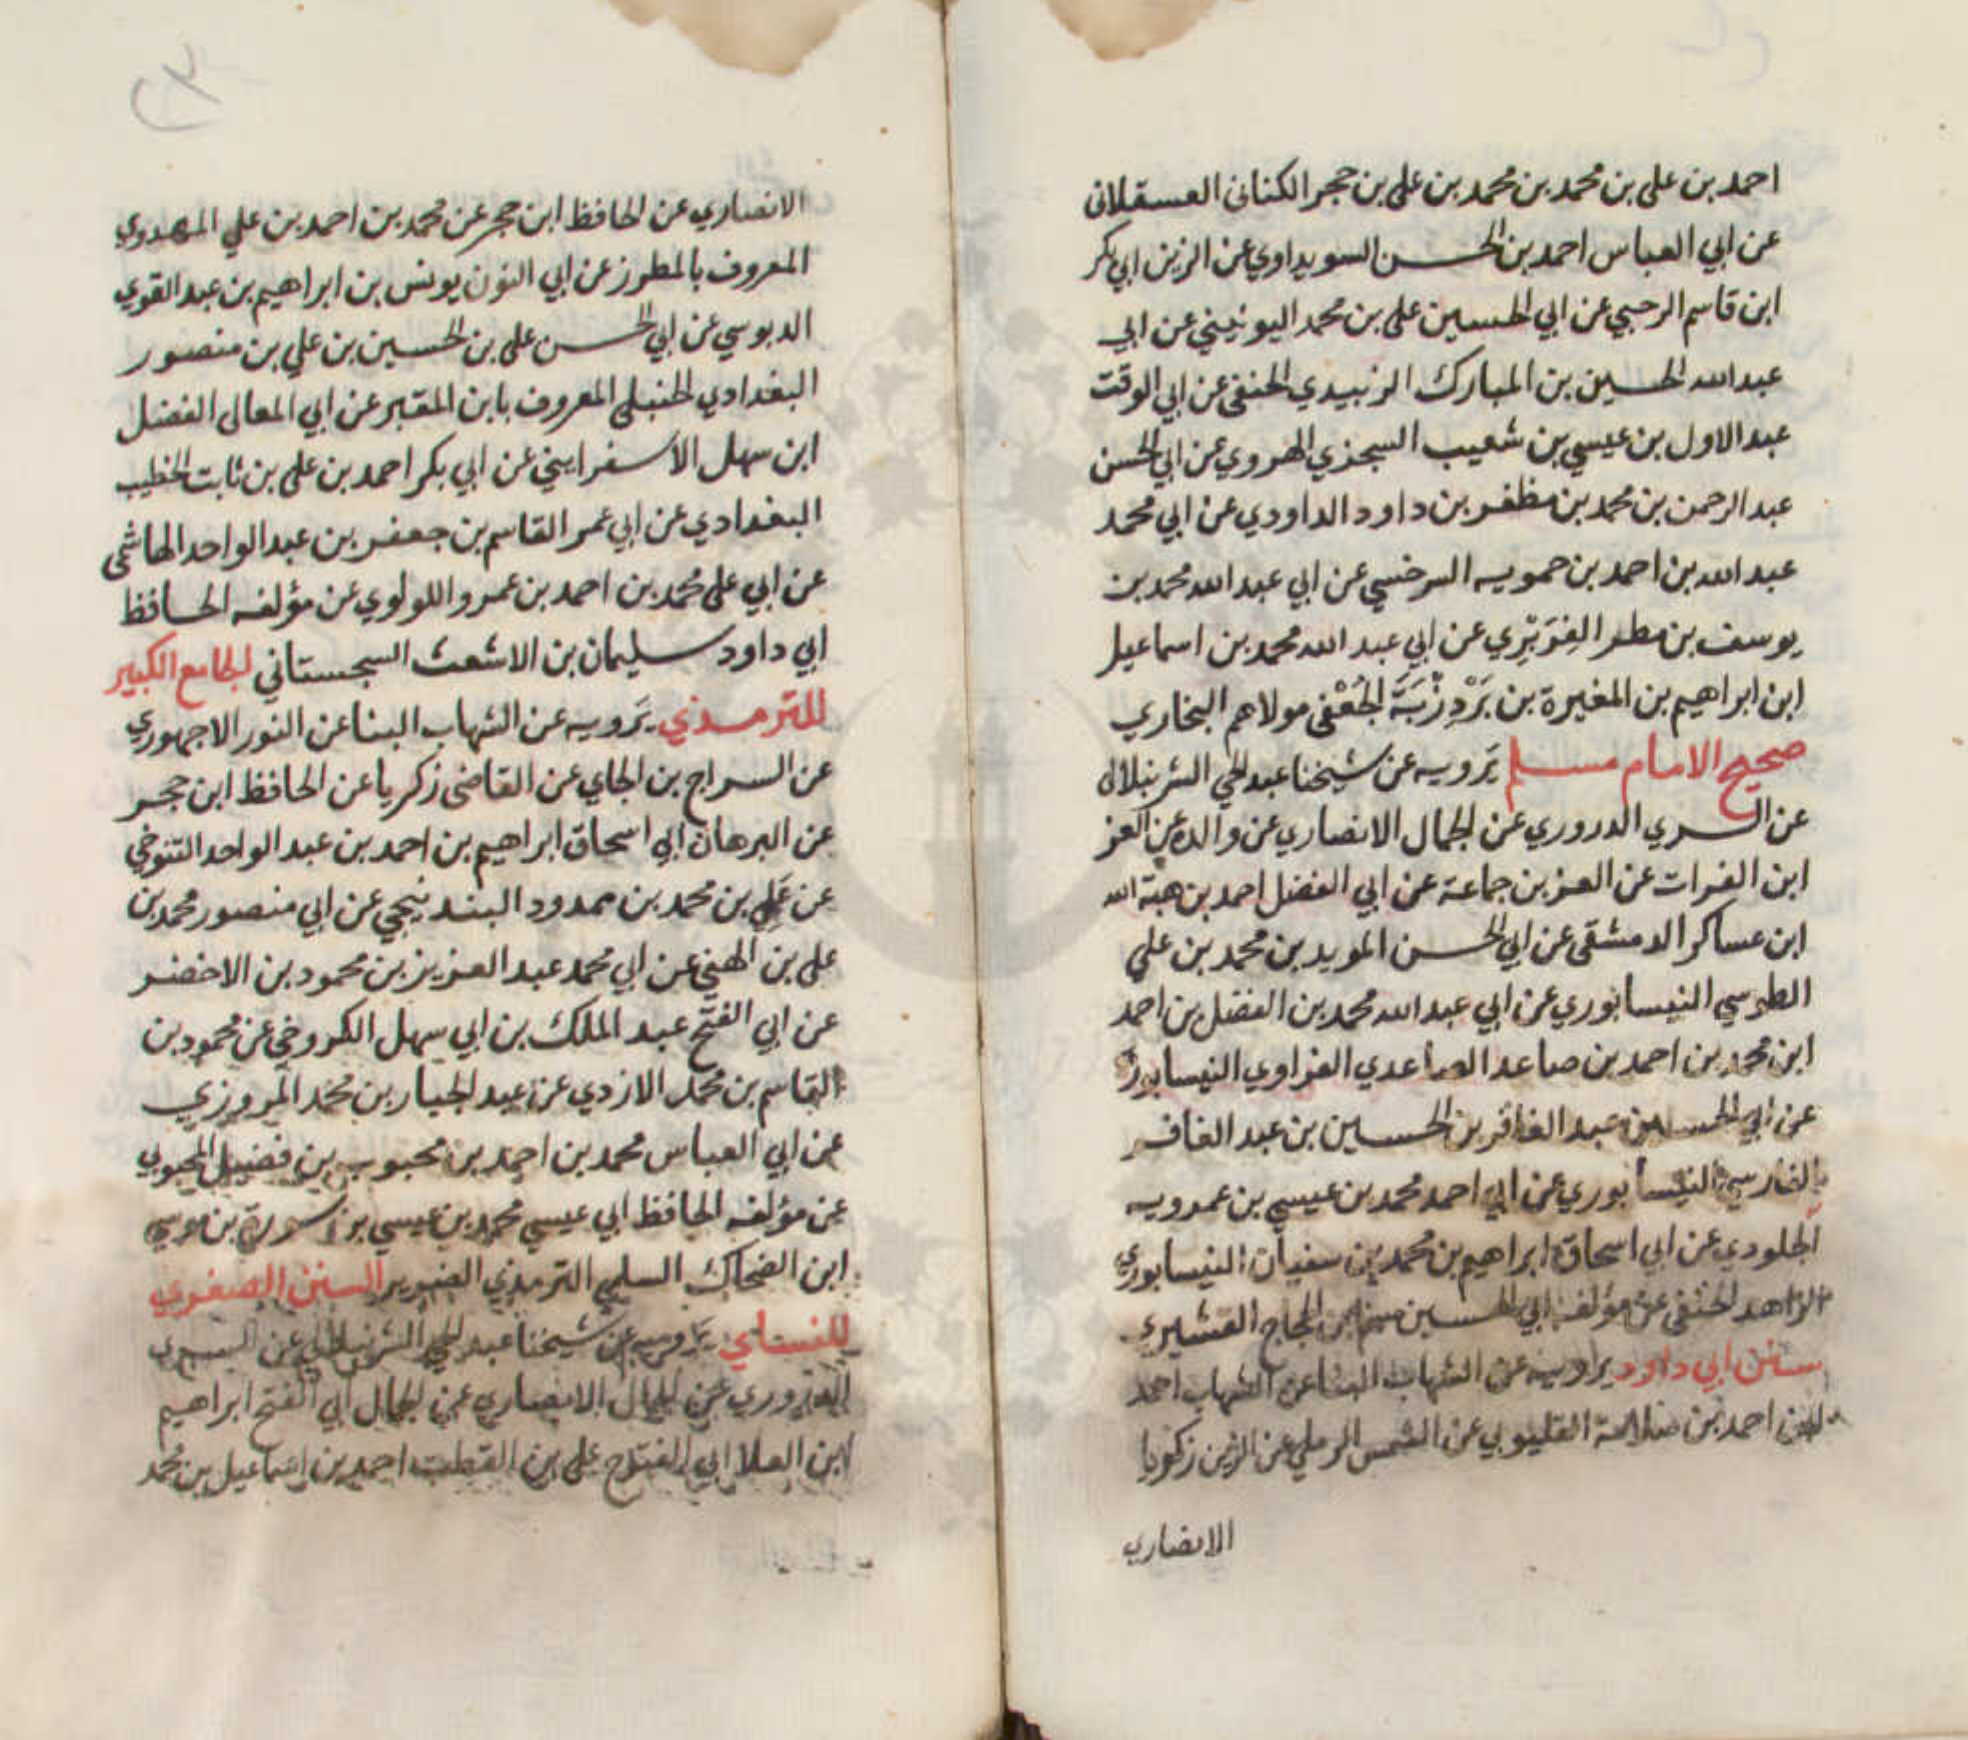 احمد بن على بن محمد بن محمد بن على بن حجر الكنانى العسقلانى
عن ابي العباس احمد بن الحسن السويداوي عن الزين ابي بكر
ابن قاسم الرحبي عن ابي الحسين على بن محمد اليونيني عن ابي
عبد الله الحسين بن المبارك الزبيدي الحنفى عن ابي الوقت
عبد الاول بن عيسي بن شعيب السجزي الهروي عن ابي الحسن
عبد الرحمن بن محمد بن مظفر بن داود الداودي عن ابي محمد
عبد الله بن احمد بن حمويه السرخسي عن ابي عبد الله محمد بن
يوسف بن مطر الفربري عن ابي عبد الله محمد بن اسماعيل
ابن ابراهيم بن المغيرة بن بَرْدِزْبَة الجُعْفى مولاهم البخاري
صحيح الامام مسلم يَرويه عن شيخنا عبد الحي الشرنبلالى
عن السري الدروري عن الجمال الانصاري عن والده عن العز
ابن الفرات عن العز بن جماعة عن ابي الفضل احمد بن هبة الله
ابن عساكر الدمشقى عن ابي الحسن المويد بن محمد بن علي
الطوسي النيسابوري عن ابي عبد الله محمد بن الفضل بن احمد
ابن محمد بن احمد بن صاعد الصاعدي الفراوي النيسابوري
عن ابي الحسين عبد الغافر بن الحسين بن عبد الغافر
الفارسي النيسابوري عن ابي احمد محمد بن عيسي بن عمرويه
الجلودي عن ابي اسحاق ابراهيم بن محمد بن سفيان النيسابوري
الزاهد الحنفى عن مؤلفه ابي الحسين مسلم بن الحجاج القشيري
سنن ابي داود يرويه عن الشهاب البنا عن الشهاب احمد
بن احمد بن سلامة القليوبي عن الشمس الرملي عن الزين زكريا
الانصاري
الانصاري عن الحافظ ابن حجر عن محمد بن احمد بن علي المهدوي
المعروف بالمطرز عن ابي النون يونس بن ابراهيم بن عبد القوي
الدبوسي عن ابي الحسن على بن الحسين بن علي بن منصور
البغدادي الحنبلي المعروف بابن المقير عن ابي المعالى الفضل
ابن سهل الاسفرايني عن ابي بكر احمد بن على بن ثابت الخطيب
البغدادي عن ابي عمر القاسم بن جعفر بن عبد الواحد الهاشمى
عن ابي على محمد بن احمد بن عمرو اللولوي عن مؤلفه الحافظ
ابي داود سليمان بن الاشعث السجستاني الجامع الكبير
للترمذي يَرويه عن الشهاب البنا عن النور الاجهوري
عن السراج بن الجاي عن القاضى زكريا عن الحافظ ابن حجر
عن البرهان ابي اسحاق ابراهيم بن احمد بن عبد الواحد التنوخي
عن على بن محمد بن ممدود البندنيجي عن ابي منصور محمد بن
على بن الهني عن ابي محمد عبد العزيز بن محمود بن الاخضر
عن ابي الفتح عبد الملك بن ابي سهل الكروخي عن محمود بن
القاسم بن محمد الازدي عن عبد الجبار بن محمد المروزي
عن ابي العباس محمد بن احمد بن محبوب بن فضيل المحبوبي
عن مؤلفه الحافظ ابي عيسي محمد بن عيسي بن سورة بن موسي
ابن الضحاك السلمي الترمذي الضرير السنن الصغري
للنساي يرويه عن شيخنا عبد الحي الشرنبلالي عن السري
الدروري عن الجمال الانصاري عن الجمال ابي الفتح ابراهيم
ابن العلا ابي الفتح على بن القطب احمد بن اسماعيل بن محمد